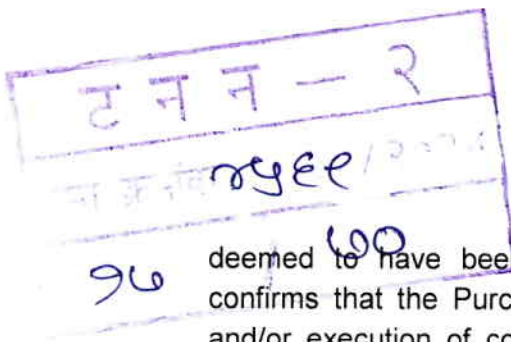 ट न न - २
१७ / ७०
deemed to have bee
confirms that the Purc
and/or execution of co